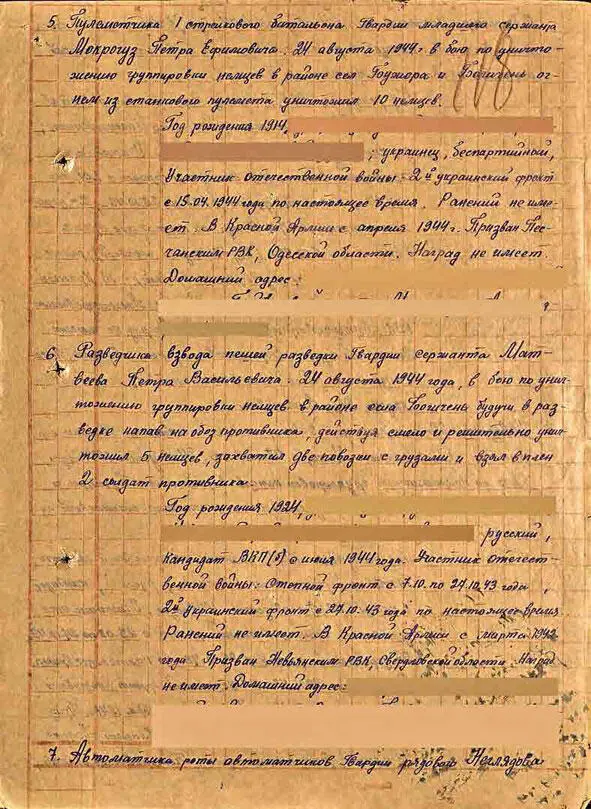 5. Пулеметчика 1 стрелкового батальона Гвардии младшего сержанта
Мокрогуз Петра Ефимовича. 24 августа 1944 г. в бою по уничто-
жению группировки немцев в районе сел Бужора и Богичень ог-
нем из станкового пулемета уничтожил 10 немцев.
Год рождения 1914,
, украинец, беспартийный,
Участник отечественной войны: 2й украинский фронт
с 15.04.1944 года по настоящее время. Ранений не име-
ет. В Красной Армии с апреля 1944 г. Призван Пес-
чанским РВК, Одесской области. Наград не имеет.
Домашний адрес:
6. Разведчика взвода пешей разведки Гвардии сержанта Мат-
веева Петра Васильевича. 24 августа 1944 года, в бою по унич-
тожению группировки немцев в районе села Богичень будучи в раз-
ведке напав на обоз противника, действуя смело и решительно унич-
тожил 5 немцев, захватил две повозки с грузами и взял в плен
2 солдат противника.
Год рождения 1924,
русский,
Кандидат ВКП(б) с июля 1944 года. Участник отечест-
венной войны: Степной фронт с 7.10. по 27.10.43 года,
2й украинский фронт с 27.10.43 года по настоящее время
Ранений не имеет. В Красной Армии с марта
года. Призван Невьянским РВК, Свердловской области. Наград
не имеет. Домашний адрес:
7. Автоматчика, роты автоматчиков Гвардии рядового Неглядова